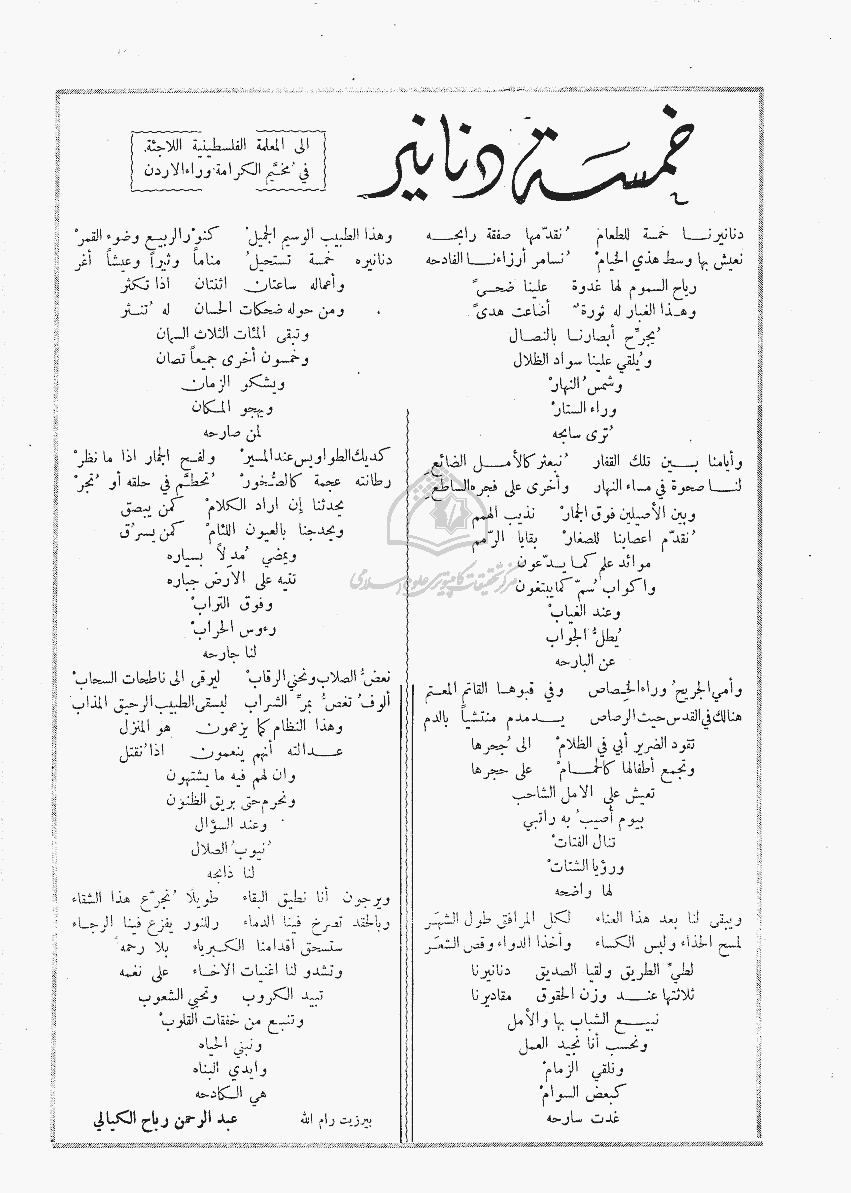 خمسة دنانير
الى المعلمة الفلسطينية اللاجئة
في مُخيَّم الكرامة وراء الاردن
دنانيرنا خمسة للطعام نُقدّمها صفقة رابحه
نعيش بها وسط هذي الخيامْ نُسامر أرزاءنا الفادحه
رياح السموم لها غدوة علينا ضحىً
وهذا الغبار له ثورةٌ أضاعت هدىً
يُجرّح أبصارنا بالنصال
ويُلقي علينا سواد الظلال
وشمس النهارْ
وراء الستارْ
تُرى سابحه
وأيامنا بين تلك القفار تُبعثر كالأمل الضائعِ
لنا صحوة في مساء النهار وأخرى على فجره الساطعِ
وبين الأصيلين فوق الجمارْ نذيب الهمم
نُقدّم اعصابنا للصغارْ بقايا الرّمم
موائد علم كما يدّعون
واكواب سُمّ كما يبتغون
وعند الغيابْ
يُطلُّ الجواب
عن البارحه
وأمي الجريحُ وراء الخِصاص وفي قبوها القاتم المعتم
هنالك في القدس حيث الرصاص يدمدم منتشياً بالدم
تقود الضرير أبي في الظلامْ الى جُحرها
وتجمع أطفالها كالحمامْ على حجرها
تعيش على الامل الشاحب
بيوم أصيبُ به راتبي
تنال الفتاتْ
ورؤيا الشتاتْ
لها واضحه
ويبقى لنا بعد هذا العناء لكل المرافق طول الشهَر
لمسح الحذاء ولبس الكساء وأخذ الدواء وقص الشعَر
لطيِّ الطريق ولقيا الصديق دنانيرنا
ثلاثتها عند وزن الحقوق مقاديرنا
نبيع الشباب بها والأمل
ونحسب أنا نجيد العمل
ونلقي الزمامْ
كبعض السوامْ
غدت سارحه
وهذا الطبيب الوسيم الجميلْ كنوْر الربيع وضوء القمرْ
دنانيره خمسة تستحيلُ مناماً وثيراً وعيشاً أغر
وأعماله ساعتان اثنتان اذا تكثر
ومن حوله ضحكات الحسان له تُنثر
وتبقى المئات الثلاث السمان
وخمسون أخرى جميعاً تصان
ويشكو الزمان
ويهجو المكان
لمن صارحه
كديك الطواويس عند المسيرْ ولفح الجمار اذا ما نظرْ
رطانته عجمة كالصُخورْ تُحطَّم في حلقه أو تُجرْ
يحدثنا إن اراد الكلامْ كمن يبصق
ويحدجنا بالعيون اللئامْ كمن يسرُق
ويمضي مُدلاً بسياره
تتيه على الارض جباره
وفوق الترابْ
رءوس الحرابْ
لنا جارحه
نعضُّ الصلاب ونحني الرقابْ ليرقى الى ناطحات السحابْ
ألوفُ تغصُّ بمرِّ الشراب ليسقى الطبيب الرحيق المذاب
وهذا النظام كما يزعمون هو المنزل
عدالته أنهم ينعمون اذا نُقتل
وان لهم فيه ما يشتهون
ونحرم حتى بريق الظنون
وعند السؤال
نُيوب الصلال
لنا ذابحه
ويرجون أنا نطيق البقاء طويلا نُجرّع هذا الشقاء
وبالحقد تصرخ فينا الدماء وللنور يفزع فينا الرجاء
ستسحق أقدامنا الكبرياء بلا رحمه
وتشدو لنا اغنيات الاخاء على نغمه
تبيد الكروب وتحيي الشعوب
وتنبع من خفقات القلوبْ
ونبني الحياه
وأيدي البناه
هي الكادحه
بيرزيت رام الله عبد الرحمن رباح الكيالي
مرکز تحقیقات کامپیوتری علوم اسلامی